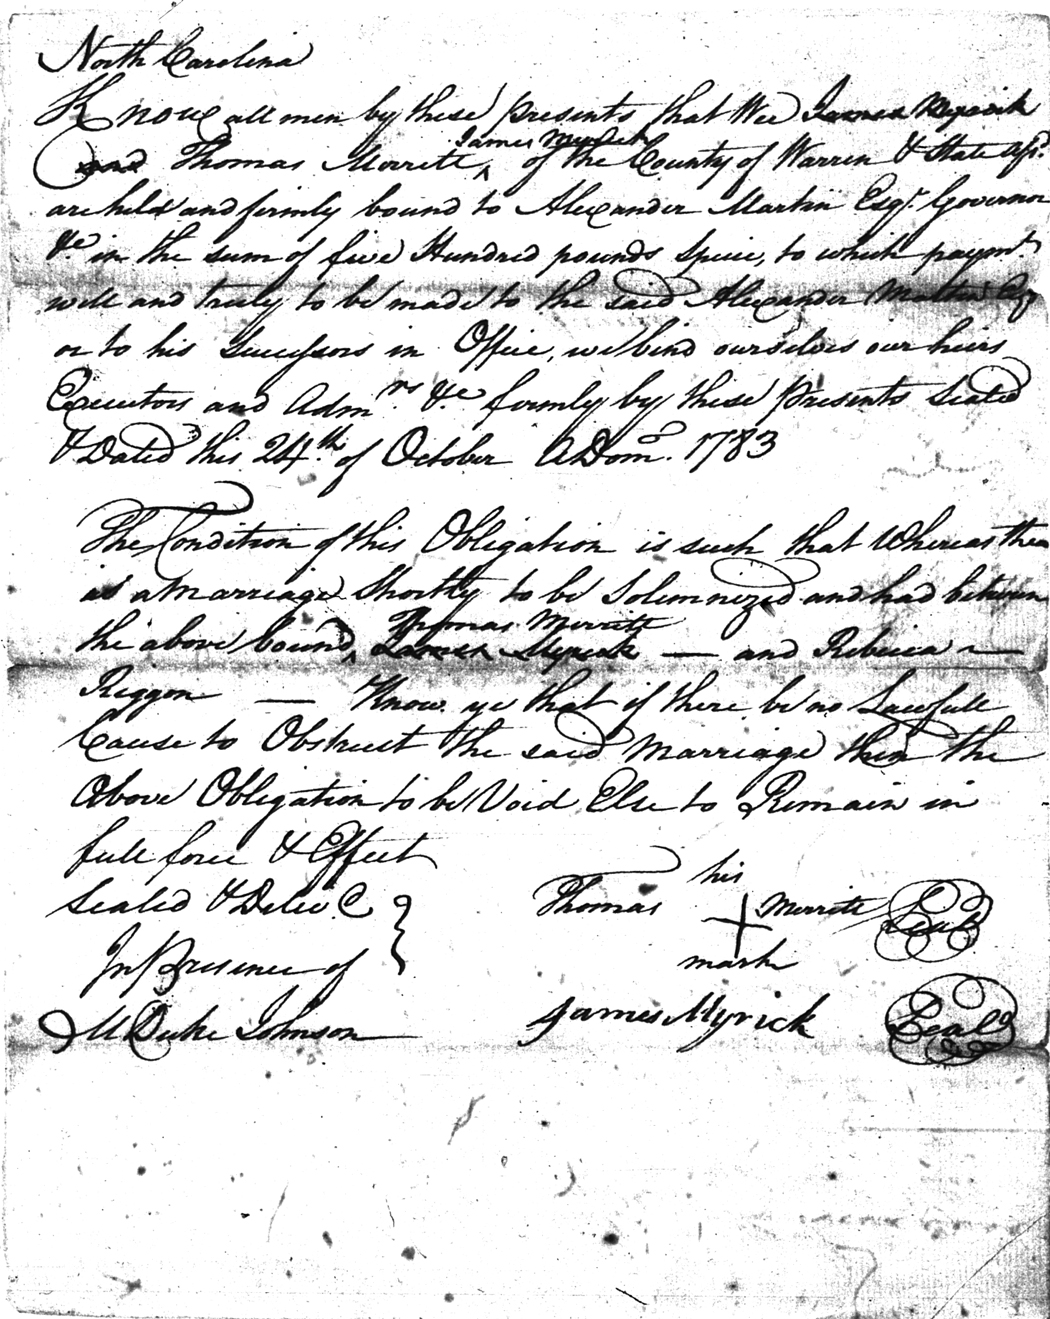 North Carolina
Know all men by these presents that Wee James Myrick
and Thomas Merritt, James Myrick of the County of Warren & State afsd.
are held and firmly bound to Alexander Martin Esqr. Governor
&c in the sum of five Hundred pounds Specie, to which paymt.
well and truly to be made to the said Alexander Martin Esq
or to his Successors in Office, we bind ourselves our heirs
Executors and Admrs. &c firmly by these presents Sealed
& Dated this 24th. of October A Dom. 1783
The Condition of this Obligation is such that Whereas there
is a Marriage Shortly to be Solemnized and had between
the above bound, Thomas Merritt James Myrick — and Rebecca
Riggon — Know ye that if there be no Lawfull
Cause to Obstruct the said Marriage then the
Above Obligation to be Void Else to Remain in
full force & Effect
Sealed & Delivd
In Presence of
M Duke Johnson
his
Thomas + Merritt Seal
mark
James Myrick Seal